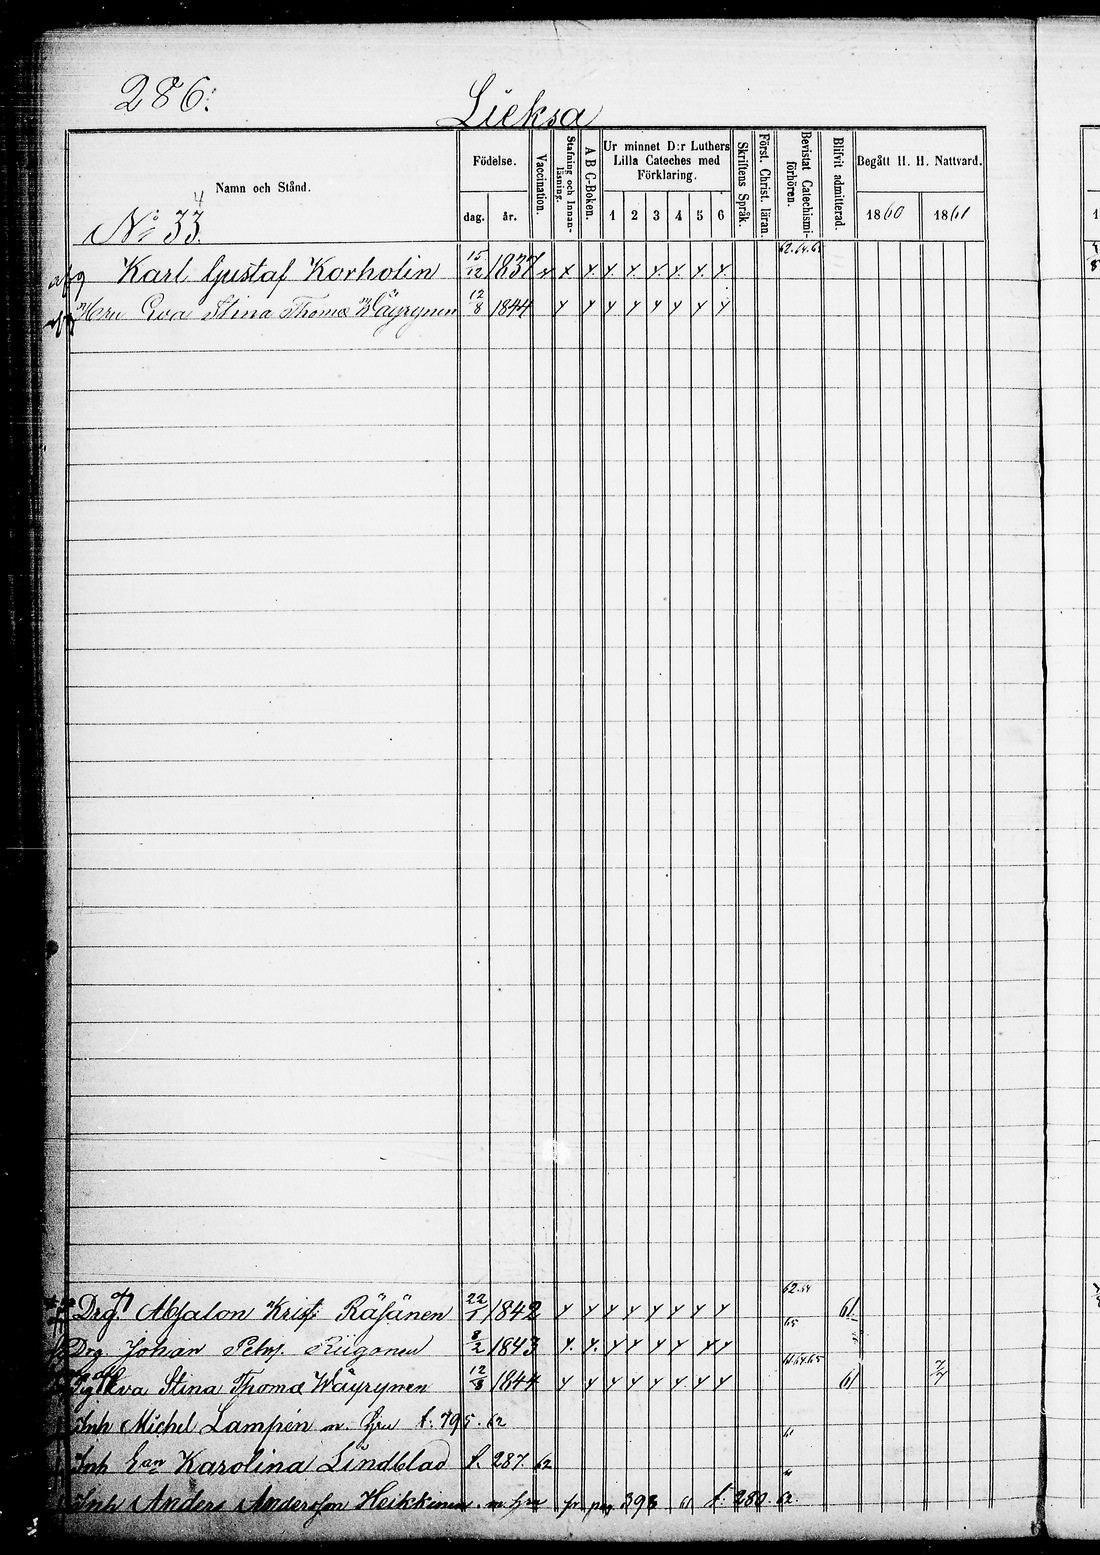 286:
Lieksa
Namn och Stånd.
4
No 33.
Födelse.
dag. år.
Vaccination.
Stafning och Innanläsning.
A B C-Boken.
Ur minnet D:r Luthers Lilla Cateches med Förklaring.
1 2 3 4 5 6
Skriftens Språk.
Först. Christ. läran.
Bevistat Catechismiförhören.
Blifvit admitterad.
Begått H. H. Nattvard.
1860 1861
62.64.65
Karl Gustaf Korholin 15/12 1837 x x x x x x x x x
Hru Eva Stina Thomæ Wäyrynen 12/8 1844 x x x x x x x x
62.64
Drg. Absalon Krist: Räsänen 22/1 1842 x x x x x x x x 61
65
Drg Johan Petrs. Riigonen 8/2 1843 x x x x x x x
61.64.65
Eva Stina Thomæ Wäyrynen 12/8 1844 x x x x x x x x 61 7/7
Inh Michel Lampén m. Hru f. 795. 62
Inh Karolina Lindblad f. 287. 62
Inh Anders Andersson Heikkinen m. hru fr. pag 393 61 f: 280. 62